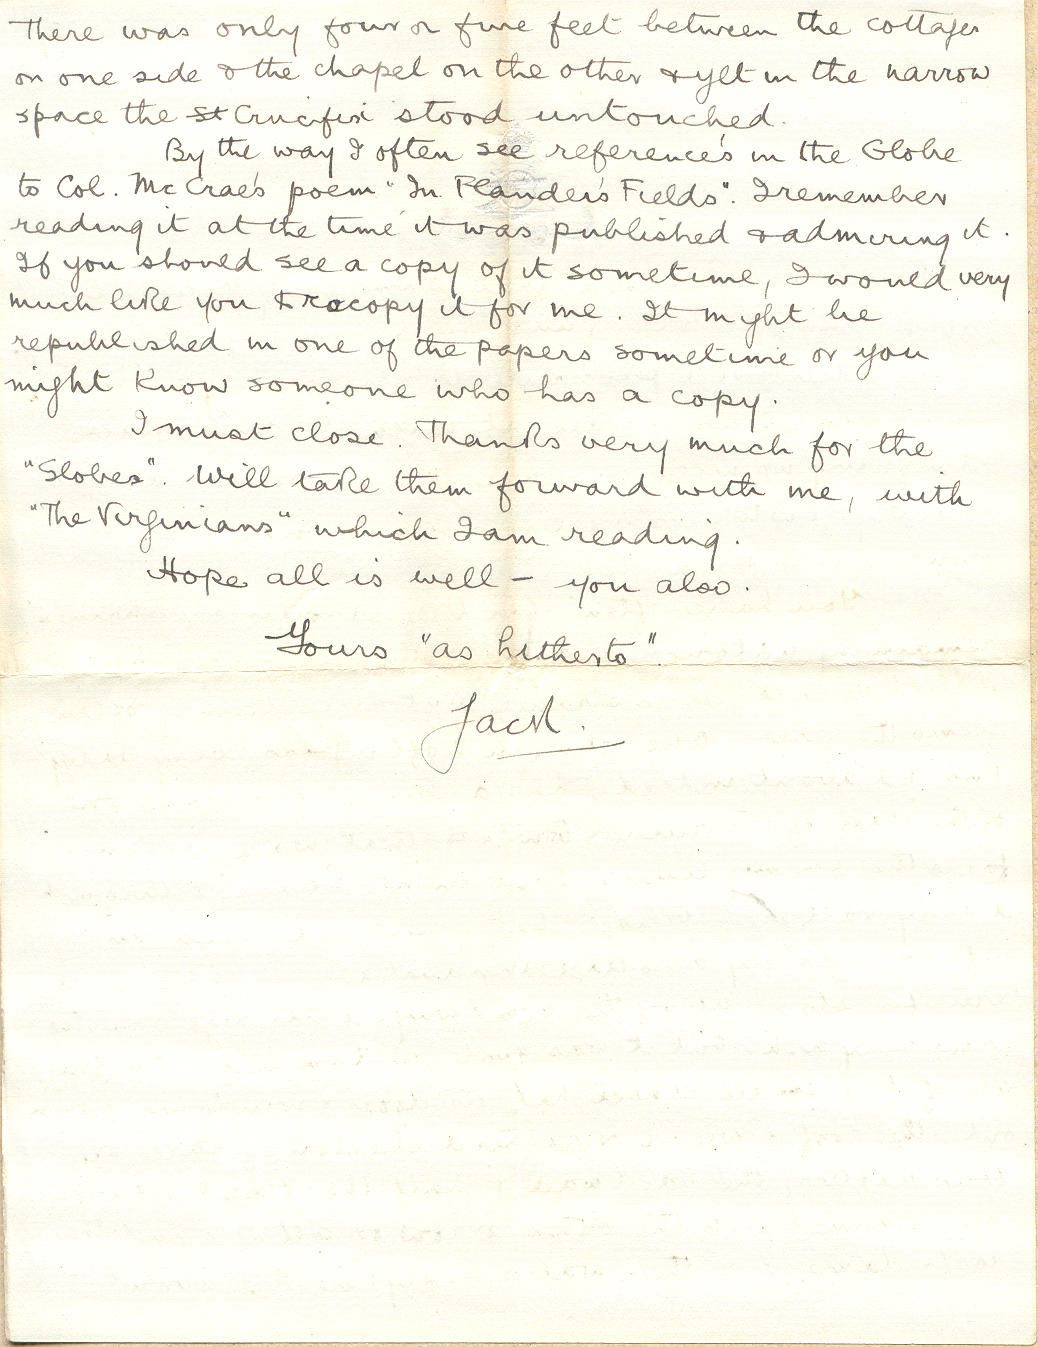 There was only four or five feet between the cottages
on one side & the chapel on the other & yet in the narrow
space the St Crucifix stood untouched.
By the way I often see reference's in the Globe
to Col. McCrae's poem "In Flander's Fields". I remember
reading it at the time it was published & admiring it.
If you should see a copy of it sometime, I would very
much like you to copy it for me. It might be
republished in one of the papers sometime or you
might know someone who has a copy.
I must close. Thanks very much for the
"Globes". Will take them forward with me, with
"The Virginians" which I am reading.
Hope all is well — you also.
Yours "as hitherto".
Jack.